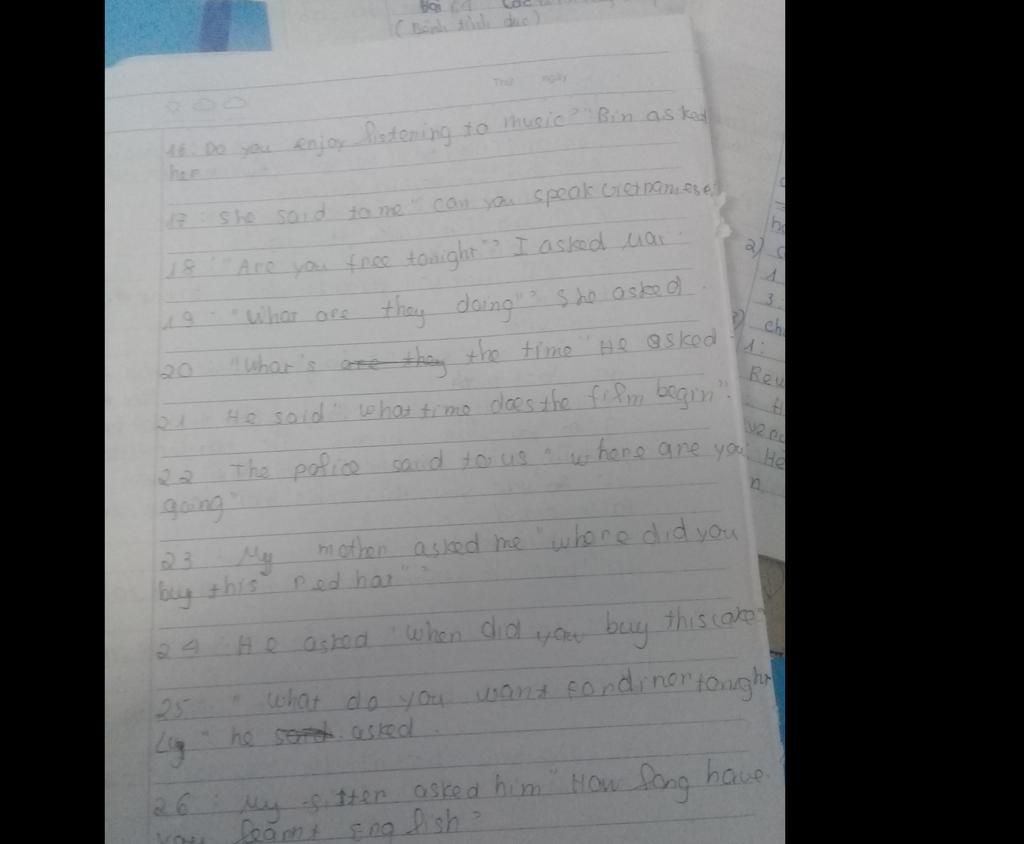 (Bánh tình dục)
Thứ ngày
16 Do you enjoy listening to music? "Bin asked
her
17: She said to me "can you speak Vietnamese
18: "Are you free tonight"? I asked Mar
19: "What are they doing"? She asked.
20 "What's are they the time" He asked
21 He said "what time does the film begin".
22 The police said to us "where are you
going"
23 My mother asked me "where did you
buy this red hat"?
24: He asked "When did you buy this cake
25: "What do you want for dinner tonight
he said. asked.
26: My sitter asked him "How long have
you learnt English?
2)
1
3.
3) ch
1:
Reu
He